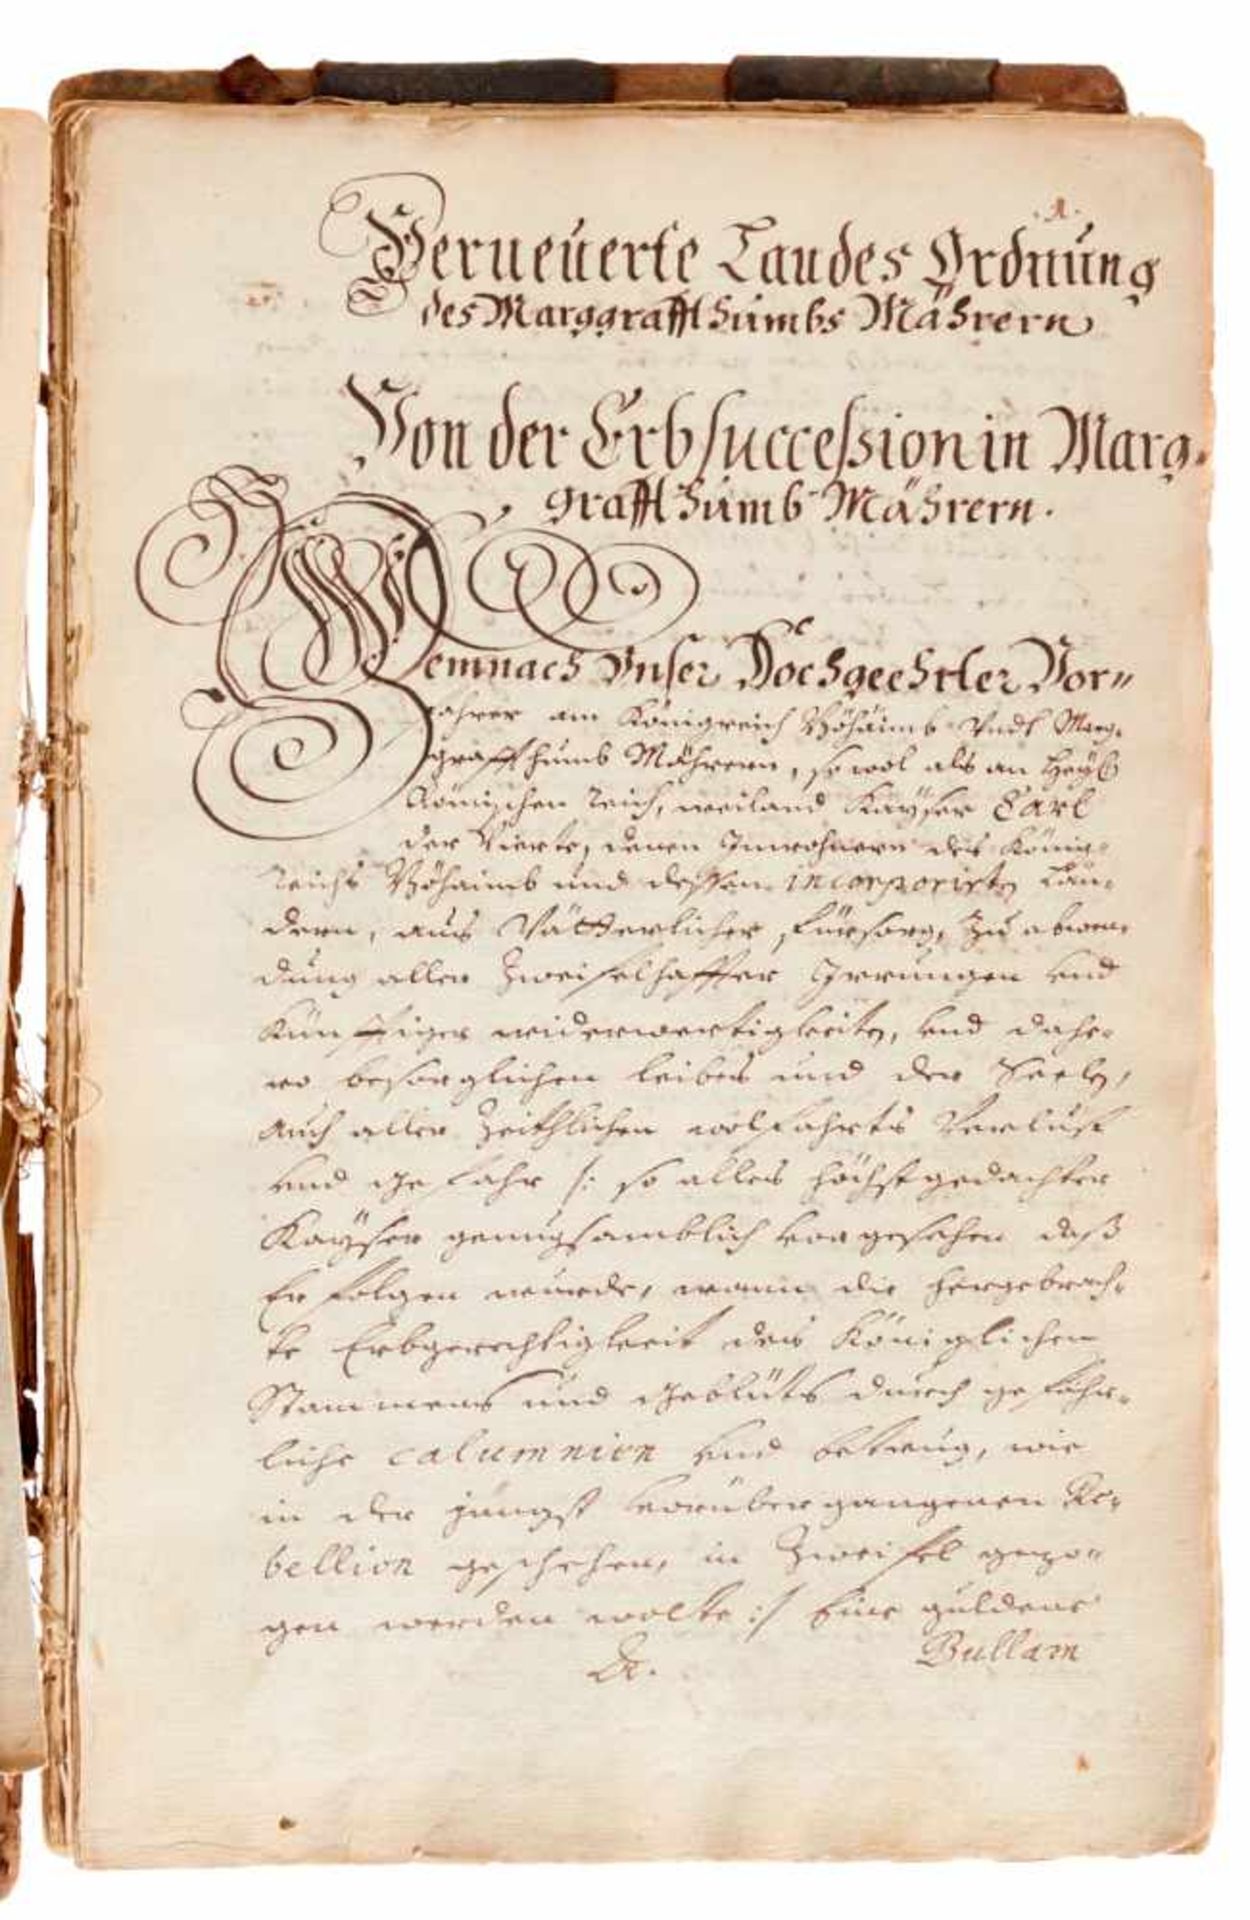 .A.
Verneuerte Landes Ordnung
des Marggraffthumbs Mährern
Von der Erbsuccession in Marg-
graffthumb Mährern.
Demnach Unser Hochgeehrter Vor=
fahrer am Königreich Böhaimb Undt Marg-
graffthumb Mährern, so wol als an Heyl.
Römischen Reich, weiland Kayser Carl
der Vierte, denen Innwohnern des König-
reichs Böhaimb und dessen incorporirten Län-
dern, aus Vätterlicher fürsorg, zu abwen-
dung aller Zweifelhaffter Irrungen und
Künfftiger widerwertigkeiten, und dahe-
ro besorglichen leibes und der Seelen,
auch aller Zeithlichen wolfahrts Verlust
und gefahr /: so alles höchstgedachter
Kayser genugsamblich vorgesehen daß
Erfolgen wurde, wann die hergebrach-
te Erbgerechtigkeit des Königlichen
Stammens und Geblüts durch gefähr-
liche calumnien und betrug, wie
in der jüngst vorübergangenen Re-
bellion geschehen, in Zweifel gezo=
gen werden wolte :/ Eine guldene
A. Bullam